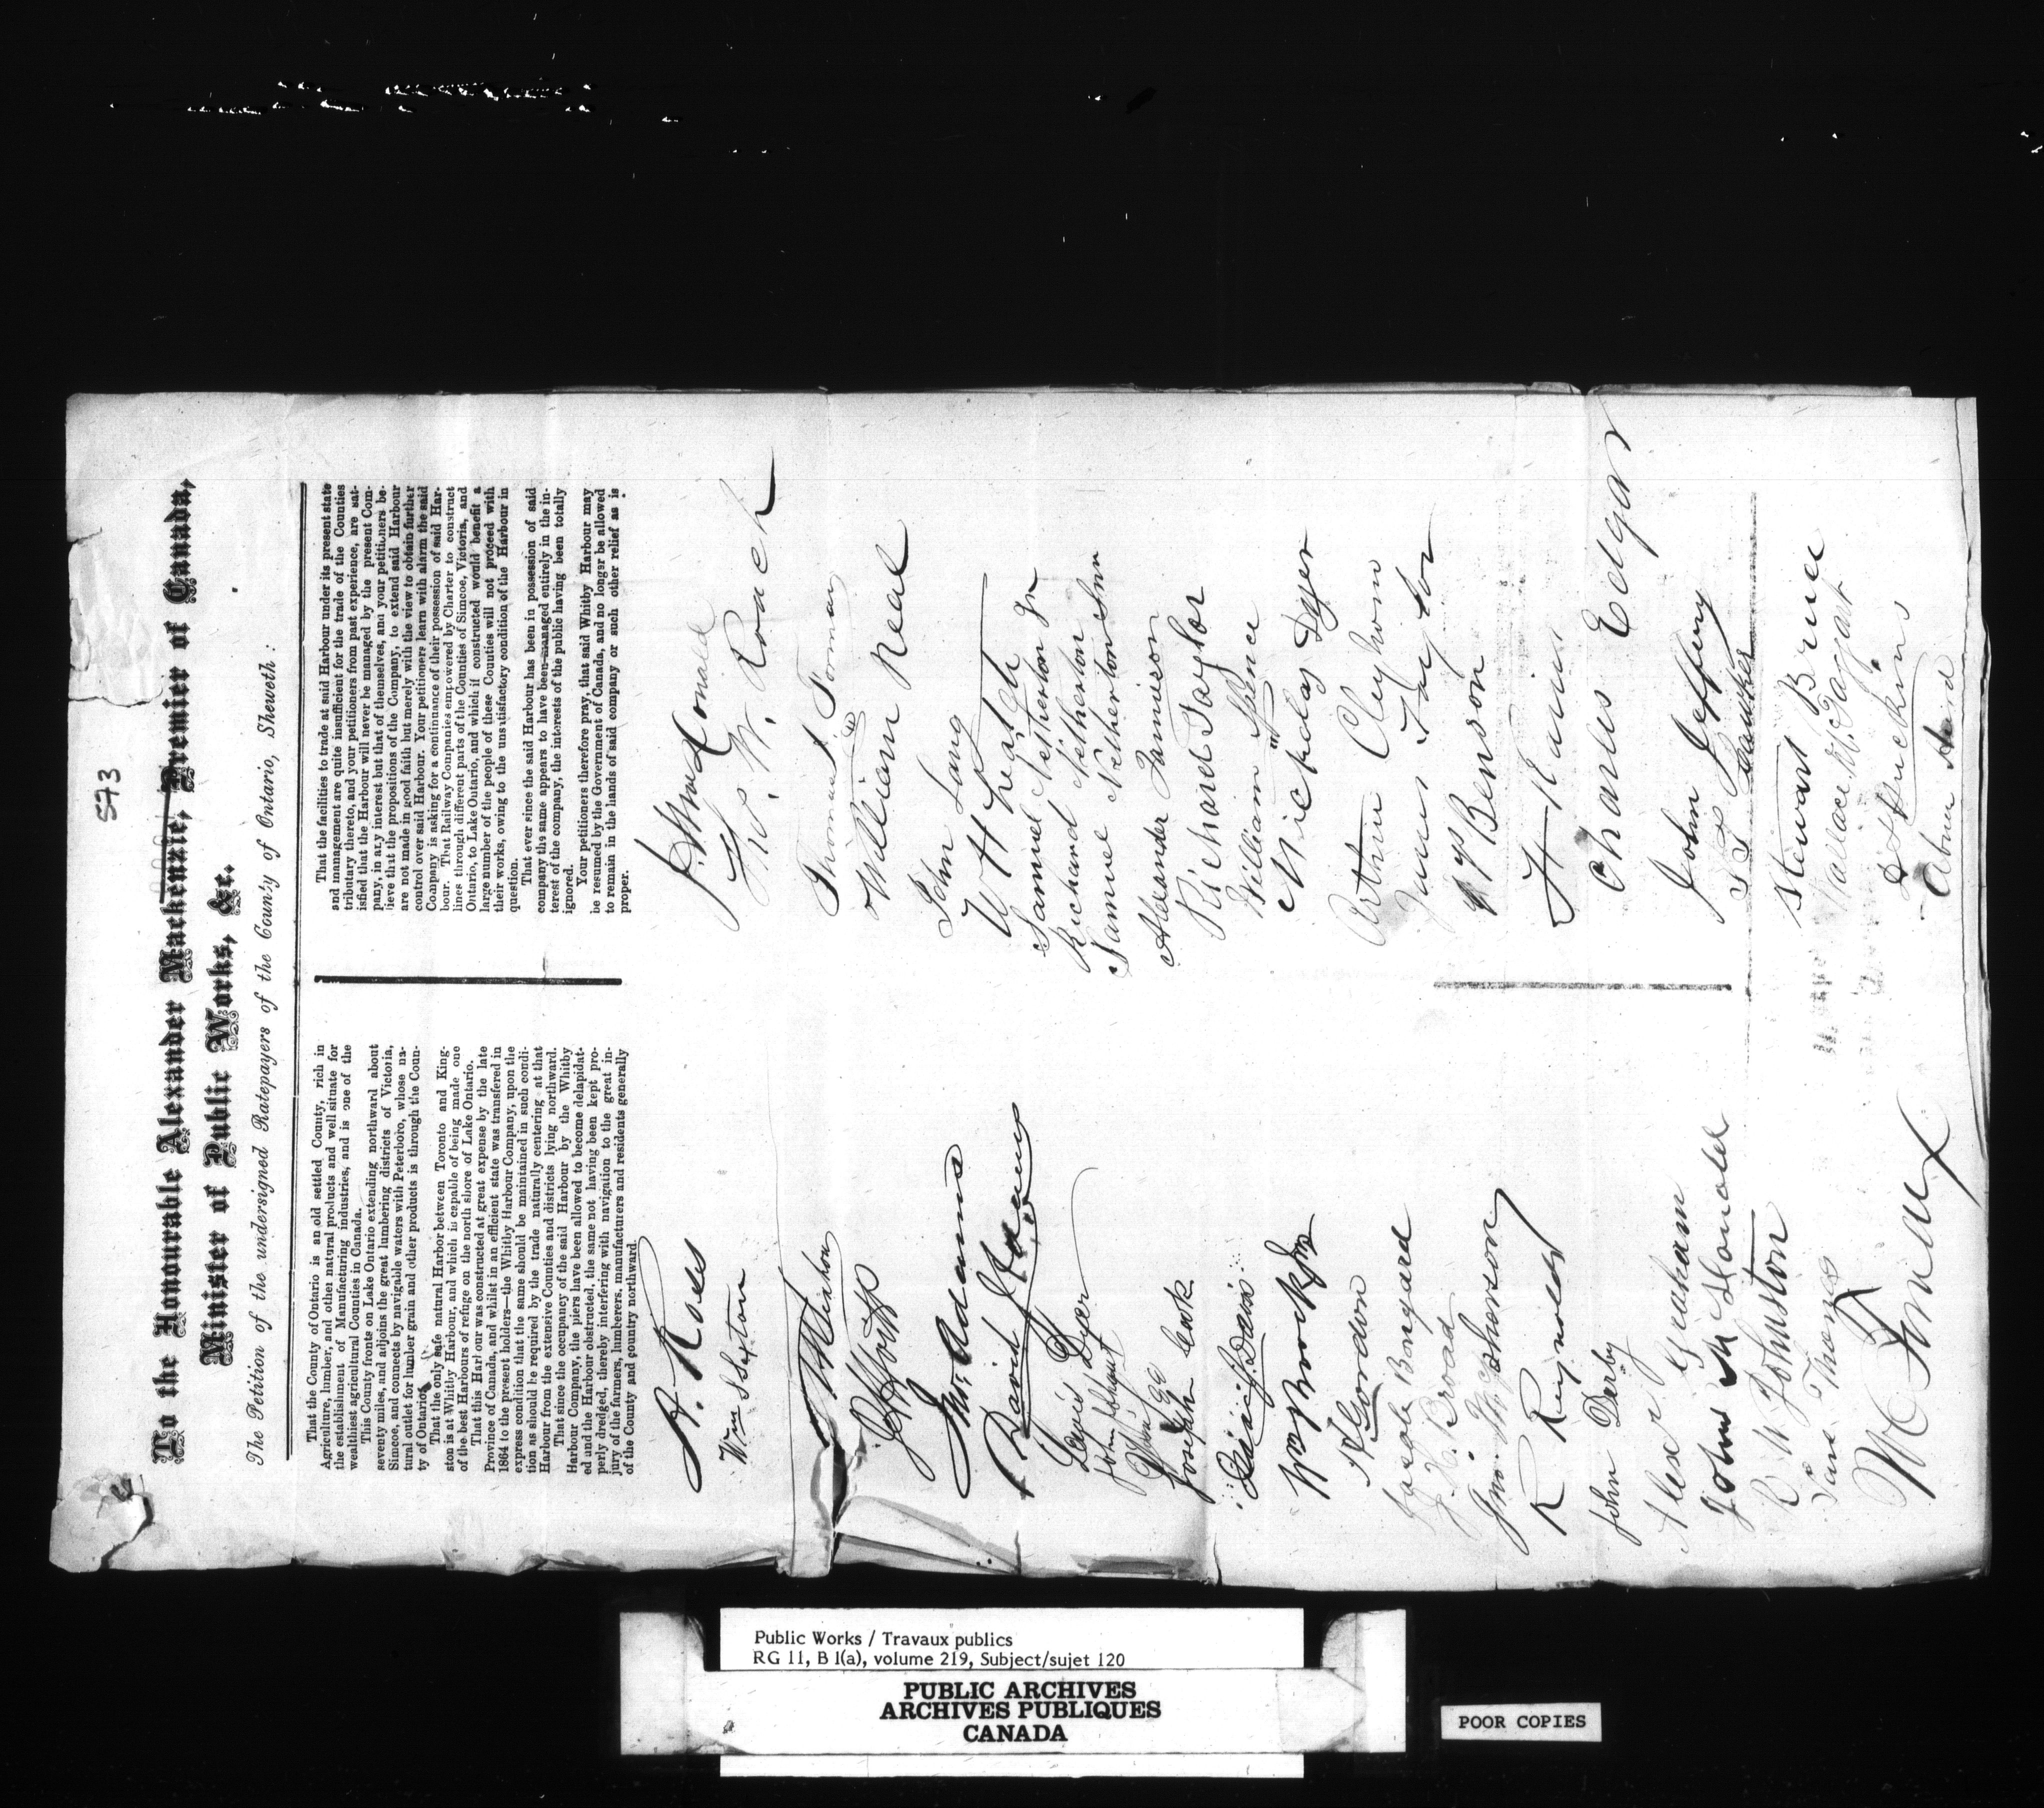 573
To the Honourable Alexander Mackenzie, Premier of Canada,
Minister of Public Works, &c.
The Petition of the undersigned Ratepayers of the County of Ontario, Sheweth :
That the County of Ontario is an old settled County, rich in
Agriculture, lumber, and other natural products and well situate for
the establishment of Manufacturing industries, and is one of the
wealthiest agricultural Counties in Canada.
This County fronts on Lake Ontario extending northward about
seventy miles, and adjoins the great lumbering districts of Victoria,
Simcoe, and connects by navigable waters with Peterboro, whose na-
tural outlet for lumber grain and other products is through the Coun-
ty of Ontario.
That the only safe natural Harbor between Toronto and King-
ston is at Whitby Harbour, and which is capable of being made one
of the best Harbours of refuge on the north shore of Lake Ontario.
That this Harbour was constructed at great expense by the late
Province of Canada, and whilst in an efficient state was transfered in
1864 to the present holders—the Whitby Harbour Company, upon the
express condition that the same should be maintained in such condi-
tion as should be required by the trade naturally centering at that
Harbour from the extensive Counties and districts lying northward.
That since the occupancy of the said Harbour by the Whitby
Harbour Company, the piers have been allowed to become delapidat-
ed and the Harbour obstructed, the same not having been kept pro-
perly dredged, thereby interfering with navigation to the great in-
jury of the farmers, lumberers, manufacturers and residents generally
of the County and country northward.
That the facilities to trade at said Harbour under its present state
and management are quite insufficient for the trade of the Counties
tributary thereto, and your petitioners from past experience, are sat-
isfied that the Harbour will never be managed by the present Com-
pany, in any interest but that of themselves, and your petitioners be-
lieve that the propositions of the Company, to extend said Harbour
are not made in good faith but merely with the view to obtain further
control over said Harbour. Your petitioners learn with alarm the said
Company is asking for a continuance of their possession of said Har-
bour. That Railway Companies empowered by Charter to construct
lines through different parts of the Counties of Simcoe, Victoria, and
Ontario, to Lake Ontario, and which if constructed would benefit a
large number of the people of these Counties will not proceed with
their works, owing to the unsatisfactory condition of the Harbour in
question.
That ever since the said Harbour has been in possession of said
company the same appears to have been managed entirely in the in-
terest of the company, the interests of the public having been totally
ignored.
Your petitioners therefore pray, that said Whitby Harbour may
be resumed by the Government of Canada, and no longer be allowed
to remain in the hands of said company or such other relief as is
proper.
A. Ross
Wm Sexton
Jno. Adams
David Adams
Dyer
Joseph Leak
Davis
Wm Brooks
Gordon
Jacob Bongard
J. H. Broad
Jno. McPherson
R Reynolds
John Darby
Alexr Graham
John McDonald
R W Johnston
W. Roach
William Neal
John Lang
W H Heath
Samuel Netherton Jr
Richard Netherton
Samuel Netherton Snr
Alexander Jamieson
Richard Taylor
William Spence
Nicholas Dyer
Arthur Cleghorn
James Taylor
Benson
Charles Edgar
John Jeffery
Stewart Bruce
Wallace McTaggart
Public Works / Travaux publics
RG 11, B 1(a), volume 219, Subject/sujet 120
PUBLIC ARCHIVES
ARCHIVES PUBLIQUES
CANADA
POOR COPIES